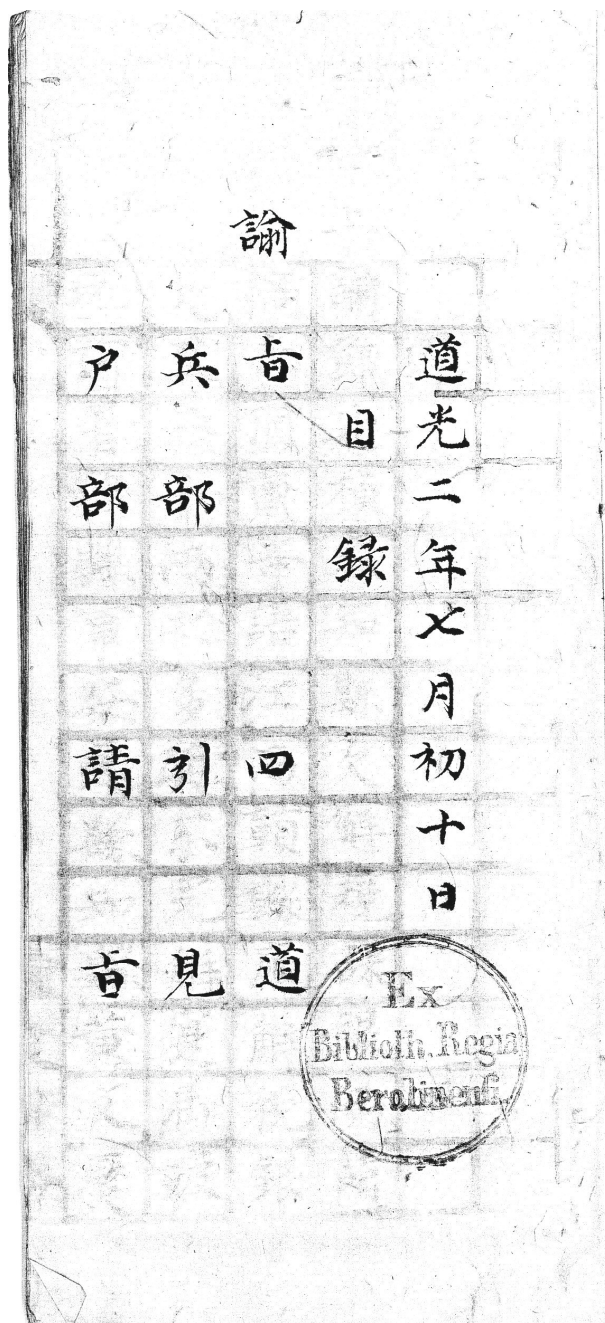 道光二年七月初十日
目録
諭旨四道
兵部引見
户部請旨
Ex
Biblioth. Regia
Berolinensi.